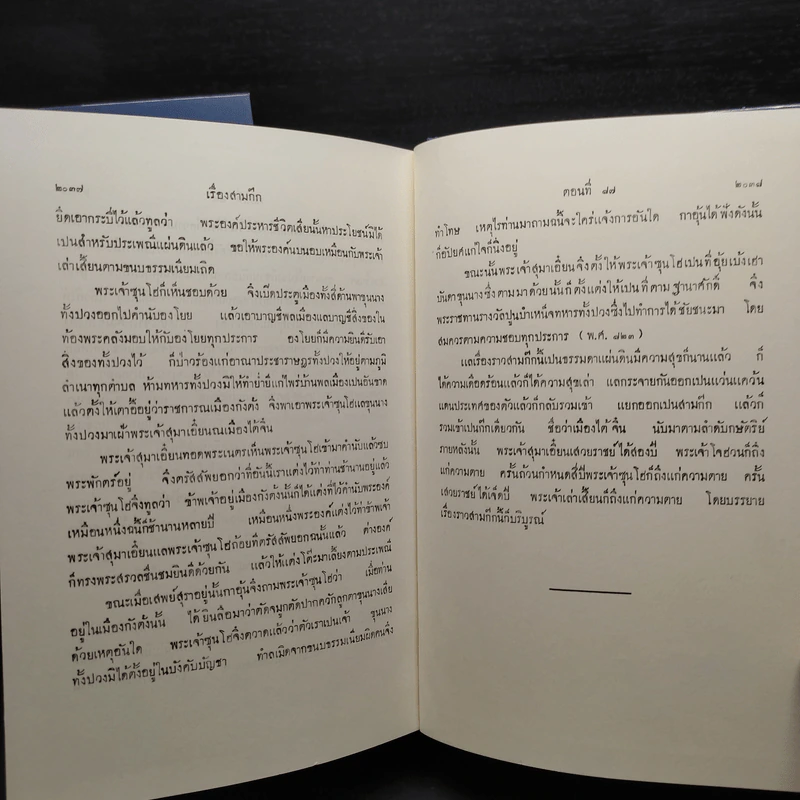 ๒๐๓๗
เรื่องสามก๊ก
ยึดเอากระบี่ไว้แล้วทูลว่า พระองค์ประหารชีวิตเสียนั้นหาประโยชน์มิได้
เปนสำหรับประเพณีแผ่นดินแล้ว ขอให้พระองค์บนนอบเหมือนกับพระเจ้า
เล่าเสี้ยนตามขนบธรรมเนียมเถิด
พระเจ้าซุนโฮก็เห็นชอบด้วย จึงเปิดประตูเมืองทั้งสี่ด้านพาขุนนาง
ทั้งปวงออกไปคำนับอองโยย แล้วเอาบาญชีพลเมืองแลบาญชีสิ่งของใน
ท้องพระคลังมอบให้กับอองโยยทุกประการ อองโยยก็มีความยินดีรับเอา
สิ่งของทั้งปวงไว้ ก็ป่าวร้องแก่อาณาประชาราษฎรทั้งปวงให้อยู่ตามภูมิ
ลำเนาทุกตำบล ห้ามทหารทั้งปวงมิให้ทำย่ำยีแก่ไพร่บ้านพลเมืองเปนอันขาด
แล้วตั้งให้เตาอี้อยู่ว่าราชการณเมืองกังตั๋ง จึงพาเอาพระเจ้าซุนโฮแลขุนนาง
ทั้งปวงมาเฝ้าพระเจ้าสุมาเอี๋ยนณเมืองไต้จิ้น
พระเจ้าสุมาเอี๋ยนทอดพระเนตรเห็นพระเจ้าซุนโฮเข้ามาคำนับแล้วซบ
พระพักตร์อยู่ จึงตรัสสัพยอกว่าที่อันนี้เราแต่งไว้ท่าท่านช้านานอยู่แล้ว
พระเจ้าซุนโฮจึงทูลว่า ข้าพเจ้าอยู่เมืองกังตั๋งนั้นก็ได้แต่งที่ไว้คำนับพระองค์
เหมือนหนึ่งฉะนี้ก็ช้านานหลายปี เหมือนหนึ่งพระองค์แต่งไว้ท่าข้าพเจ้า
พระเจ้าสุมาเอี๋ยนแลพระเจ้าซุนโฮถ้อยทีตรัสสัพยอกฉนั้นแล้ว ต่างองค์
ก็ทรงพระสรวลชื่นชมยินดีด้วยกัน แล้วให้แต่งโต๊ะมาเลี้ยงตามประเพณี
ขณะเมื่อเสพย์สุราอยู่นั้นกาอุ้นจึงถามพระเจ้าซุนโฮว่า เมื่อท่าน
อยู่ในเมืองกังตั๋งนั้น ได้ยินลือมาว่าตัดจมูกตัดปากควักลูกตาขุนนางเสีย
ด้วยเหตุอันใด พระเจ้าซุนโฮจึงตวาดแล้วว่าตัวเราเปนเจ้า ขุนนาง
ทั้งปวงมิได้ตั้งอยู่ในบังคับบัญชา ทำละเมิดจากขนบธรรมเนียมผิดคนจึง
ตอนที่ ๘๗
๒๐๓๘
ทำโทษ เหตุไรท่านมาถามฉะนี้จะใคร่แจ้งการอันใด กาอุ้นได้ฟังดังนั้น
ก็อัปยศแก่ใจก็นิ่งอยู่
ขณะนั้นพระเจ้าสุมาเอี๋ยนจึงตั้งให้พระเจ้าซุนโฮเปนที่อุ้ยเบ้งเฮา
บันดาขุนนางซึ่งตามมาด้วยนั้นก็ตั้งแต่งให้เปนที่ตามฐานาศักดิ์ จึง
พระราชทานรางวัลปูนบำเหน็จทหารทั้งปวงซึ่งไปทำการได้ชัยชนะมา โดย
สมควรตามความชอบทุกประการ (พ.ศ. ๘๒๓)
แลเรื่องราวสามก๊กนี้เปนธรรมดาแผ่นดินมีความสุขก็นานแล้ว ก็
ได้ความเดือดร้อนแล้วก็ได้ความสุขเล่า แลกระจายกันออกเปนแว่นแคว้น
แดนประเทศของตัวแล้วก็กลับรวมเข้า แยกออกเปนสามก๊ก แล้วก็
รวมเข้าเปนก๊กเดียวกัน ชื่อว่าเมืองไต้จิ้น นับมาตามลำดับกษัตริย์
ภายหลังนั้น พระเจ้าสุมาเอี๋ยนเสวยราชย์ได้สองปี พระเจ้าโจฮวนก็ถึง
แก่ความตาย ครั้นถ้วนกำหนดสี่ปีพระเจ้าซุนโฮก็ถึงแก่ความตาย ครั้น
เสวยราชย์ได้เจ็ดปี พระเจ้าเล่าเสี้ยนก็ถึงแก่ความตาย โดยบรรยาย
เรื่องราวสามก๊กนี้ก็บริบูรณ์